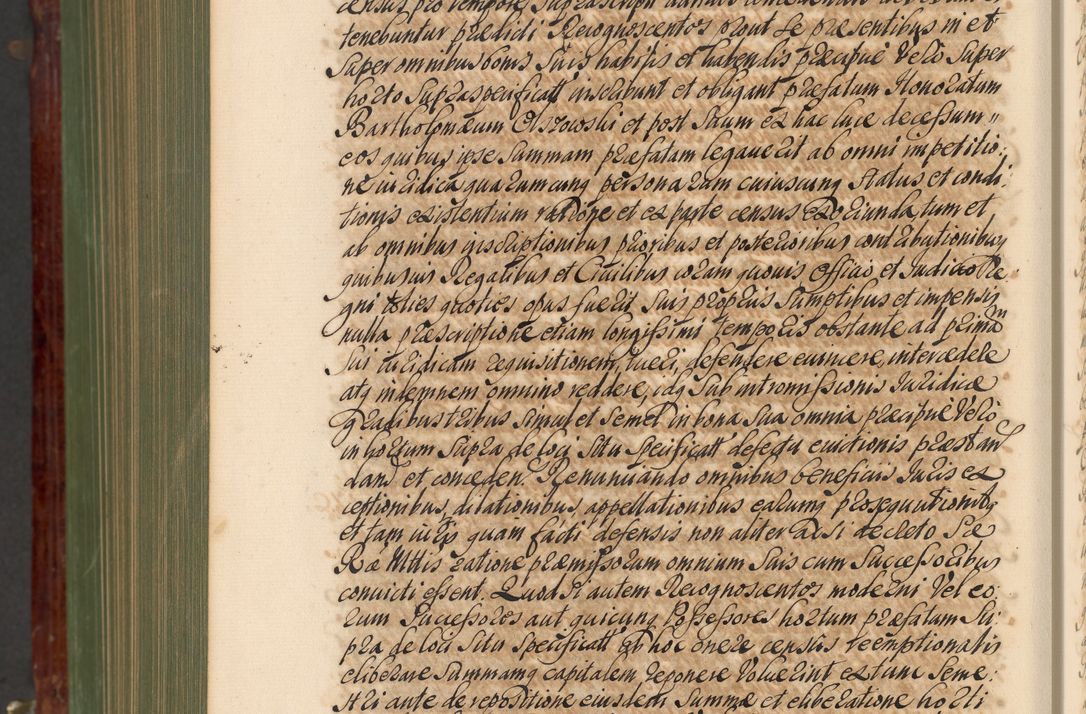 census pro tempore supra scripti
tenebuntur prædicti Recognoscentes prout se præsentibus in et
super omnibus bonis suis habitis et habendis præcipuè Verò super
horto supraspecificatt inscribunt et obligant præfatum Honoratum
Bartholomæum Olszowski et post Suum ex hac luce decessum
eos quibus ipse Summam præfatam legaverit ab omni impetitio¬
ne iuridica quarumcunq personarum cuiuscunq Status et condi¬
tionis existentium ratione et ex parte census exoriunda tum et
ab omnibus inscriptionibus prioribus et posterioribus contributionibus
quibusuis Regalibus et Ciuilibus coram quouis Officio et Iudicio Re
gni toties quoties opus fuerit suis proprijs sumptibus et impensis
nulla præscriptione etiam longissimi temporis obstante ad primam
sui iuridicam requisitionem, tueri, defendere euincere, intercedere
atq indemnem omnino reddere, idq sub intromissionis Iuridicæ
gradibus tribus simul et semel in bona sua omnia præcipuè Verò
in hortum supra de loci situ specificatt defectu euictionis præstan
dand et conceden. Renunciando omnibus beneficijs Iuris ex
ceptionibus, dilationibus, appellationibus earumq prosequutionibq
et tam iuris quam facti defensis non aliter ac si decreto Sæ
Ræ Mttis ratione præmissorum omnium suis cum Successoribus
convicti essent. Quod si autem Recognoscentes moderni Vel eo¬
rum Successores aut quicunq Possessores hortum præfatum su¬
pra de loci situ specificatt ab hoc onere census reemptionalis
eliberare summamq capitalem reponere Voluerint extunc seme¬
stri ante de repositione eiusdem Summæ et eliberatione horti